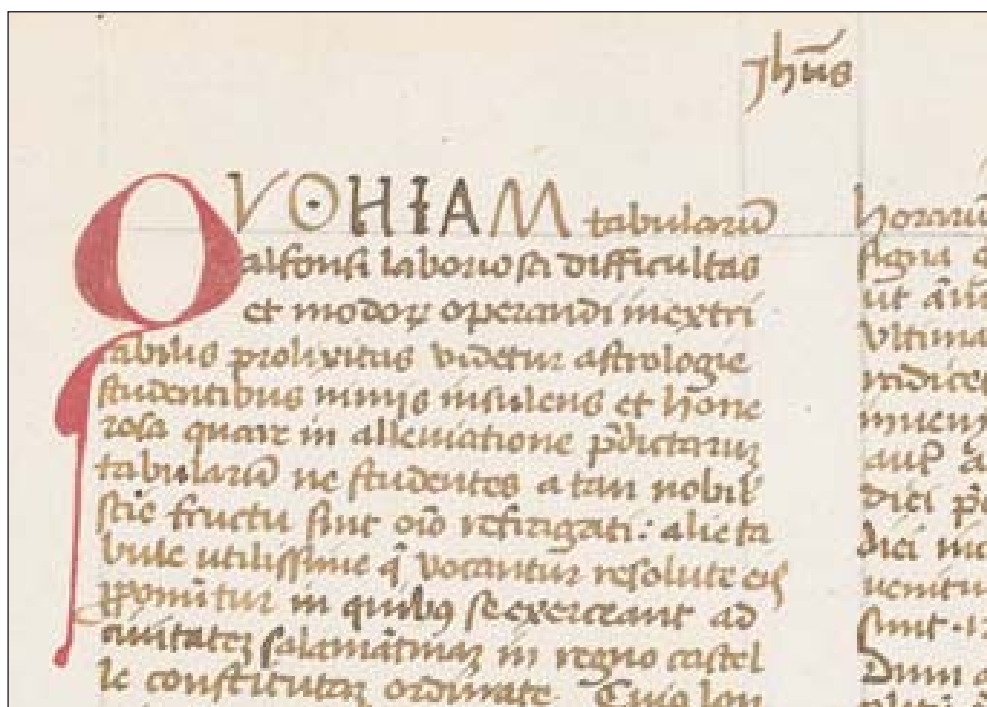 Jhūs
QVOHIAM tabularū
alfonsi laboriosa difficultas
et modoꝝ operandi inextri
cabilis prolixitas videtur astrologie
studentibus nimis insulens et hone
rosa quare in alleuiatione p̄dictarum
tabularū ne studentes a tan nobil
fructu sint oīo refrigati: alie ta
bule utilissime q̄ vocantur resolute eis
in quibus se exerceant ad
ciuitatem salamātinam in regno castel
le constitutam ordinate Cuius lon
horarū
signa
ut
Vltima
radices
inueni
dici
dici
uenitu
sunt
Dum